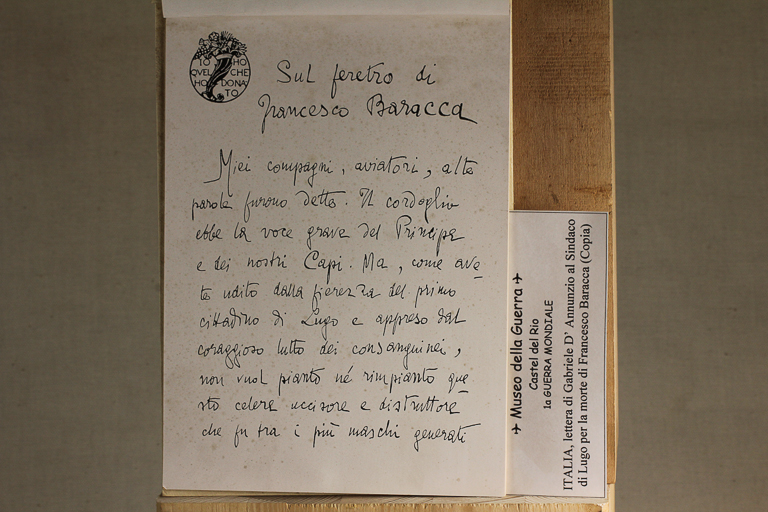 IO HO
QVEL CHE
HO DONA
TO
Sul feretro di
Francesco Baracca
Miei compagni, aviatori, alte
parole furono dette. Il cordoglio
ebbe la voce grave del Principe
e dei nostri Capi. Ma, come ave=
te udito dalla fierezza del primo
cittadino di Lugo e appreso dal
coraggioso lutto dei consanguinei,
non vuol pianto né rimpianto que=
sto celere uccisore e distruttore
che fu tra i più maschi generati
✈ Museo della Guerra ✈
Castel del Rio
1a GUERRA MONDIALE
ITALIA, lettera di Gabriele D' Annunzio al Sindaco
di Lugo per la morte di Francesco Baracca (Copia)